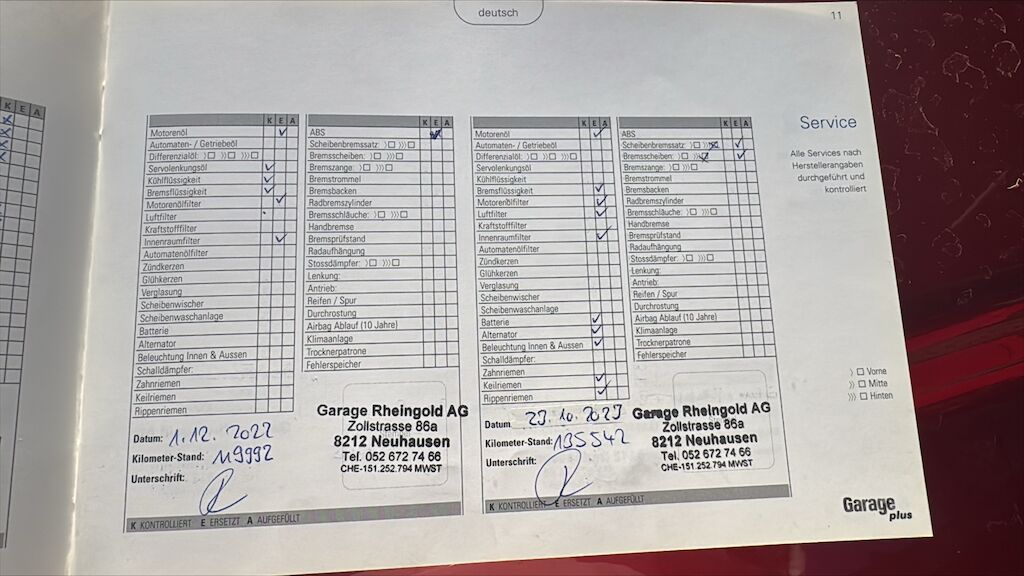 deutsch
11
K E A
K E A
Motorenöl
Automaten- / Getriebeöl
Differenzialöl: 〉☐ 〉〉☐ 〉〉〉☐
Servolenkungsöl
Kühlflüssigkeit
Bremsflüssigkeit
Motorenölfilter
Luftfilter
Kraftstofffilter
Innenraumfilter
Automatenölfilter
Zündkerzen
Glühkerzen
Verglasung
Scheibenwischer
Scheibenwaschanlage
Batterie
Alternator
Beleuchtung Innen & Aussen
Schalldämpfer:
Zahnriemen
Keilriemen
Rippenriemen
Datum: 1.12. 2022
Kilometer-Stand: 119992
Unterschrift:
K E A
ABS
Scheibenbremssatz: 〉☐ 〉〉〉☐
Bremsscheiben: 〉☐ 〉〉〉☐
Bremszange: 〉☐ 〉〉〉☐
Bremstrommel
Bremsbacken
Radbremszylinder
Bremsschläuche: 〉☐ 〉〉〉☐
Handbremse
Bremsprüfstand
Radaufhängung
Stossdämpfer: 〉☐ 〉〉〉☐
Lenkung:
Antrieb:
Reifen / Spur
Durchrostung
Airbag Ablauf (10 Jahre)
Klimaanlage
Trocknerpatrone
Fehlerspeicher
Garage Rheingold AG
Zollstrasse 86a
8212 Neuhausen
Tel. 052 672 74 66
CHE-151.252.794 MWST
K KONTROLLIERT E ERSETZT A AUFGEFÜLLT
K E A
Motorenöl
Automaten- / Getriebeöl
Differenzialöl: 〉☐ 〉〉☐ 〉〉〉☐
Servolenkungsöl
Kühlflüssigkeit
Bremsflüssigkeit
Motorenölfilter
Luftfilter
Kraftstofffilter
Innenraumfilter
Automatenölfilter
Zündkerzen
Glühkerzen
Verglasung
Scheibenwischer
Scheibenwaschanlage
Batterie
Alternator
Beleuchtung Innen & Aussen
Schalldämpfer:
Zahnriemen
Keilriemen
Rippenriemen
Datum 23.10.2023
Kilometer-Stand: 135542
Unterschrift:
K E A
ABS
Scheibenbremssatz: 〉☐ 〉〉〉☒
Bremsscheiben: 〉☐ 〉〉〉☒
Bremszange: 〉☐ 〉〉〉☐
Bremstrommel
Bremsbacken
Radbremszylinder
Bremsschläuche: 〉☐ 〉〉〉☐
Handbremse
Bremsprüfstand
Radaufhängung
Stossdämpfer: 〉☐ 〉〉〉☐
Lenkung:
Antrieb:
Reifen / Spur
Durchrostung
Airbag Ablauf (10 Jahre)
Klimaanlage
Trocknerpatrone
Fehlerspeicher
Garage Rheingold AG
Zollstrasse 86a
8212 Neuhausen
Tel. 052 672 74 66
CHE-151.252.794 MWST
K KONTROLLIERT E ERSETZT A AUFGEFÜLLT
Service
Alle Services nach
Herstellerangaben
durchgeführt und
kontrolliert
〉☐ Vorne
〉〉☐ Mitte
〉〉〉☐ Hinten
Garage
plus